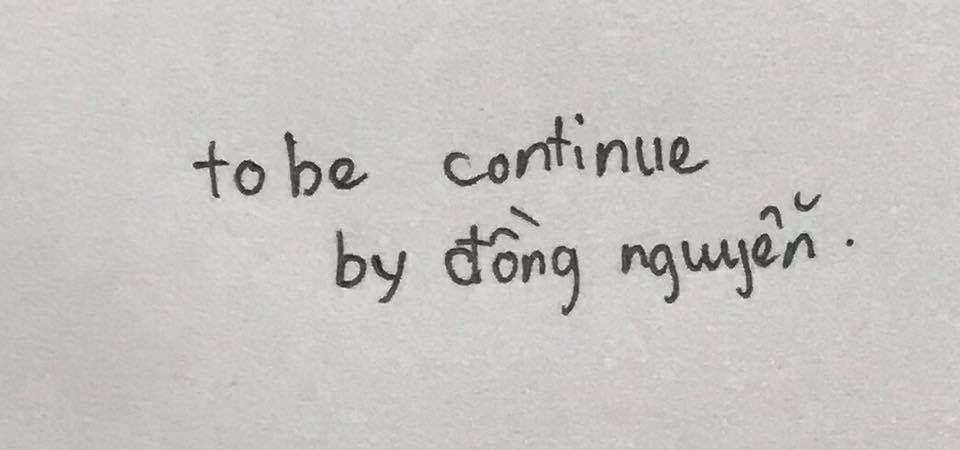 to be continue
by đồng nguyễn.